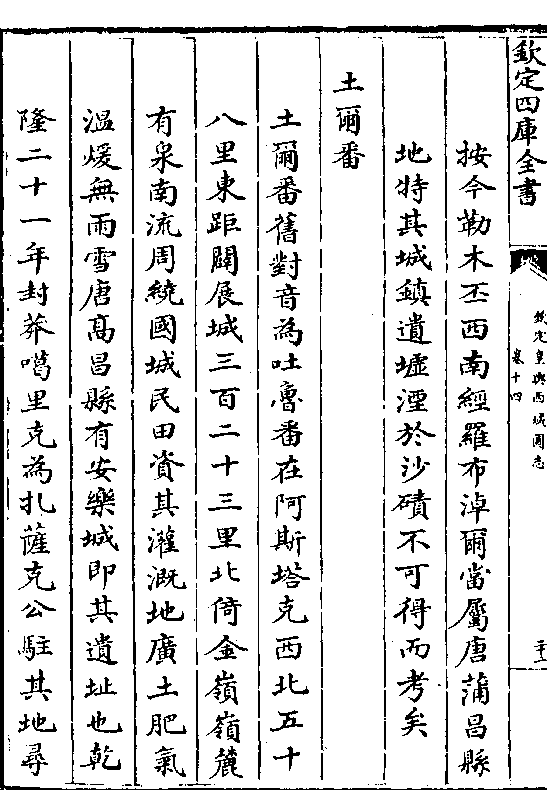 欽定四庫全書
欽定皇輿西域圖志
卷十四
二十二
按今勒木丕西南經羅布淖爾當屬唐蒲昌縣
地特其城鎮遺墟湮於沙磧不可得而考矣
土爾番
土爾番舊對音為吐魯番在阿斯塔克西北五十
八里東距闢展城三百二十三里北倚金嶺嶺麓
有泉南流周繞國城民田資其灌溉地廣土肥氣
溫煖無雨雪唐髙昌縣有安樂城即其遺址也乾
隆二十一年封莽噶里克為扎薩克公駐其地尋